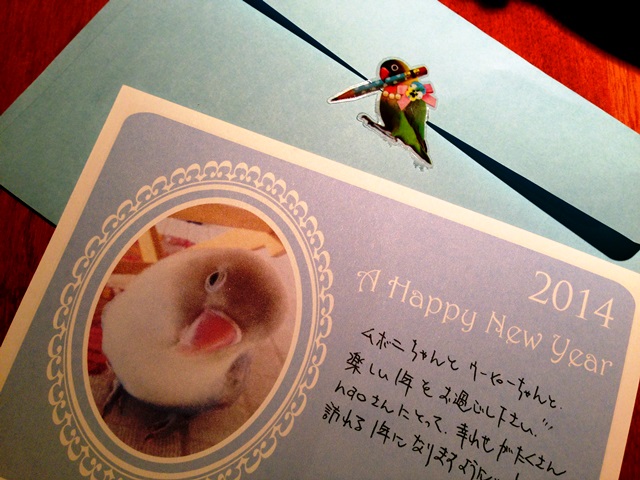 2014
A Happy New Year
ムボニちゃんと ウーピーちゃんと、
楽しい1年をお過ごし下さい…
naoさんにとって、幸せがたくさん
訪れる1年になりますように